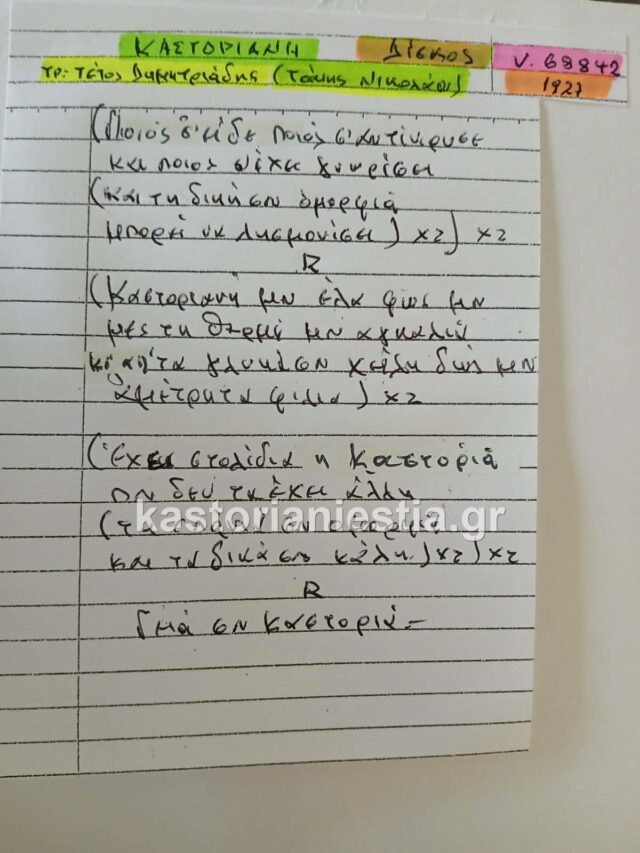 ΚΑΣΤΟΡΙΑΝΗ ΔΙΣΚΟΣ V. 68842
τρ: Τέτος Δημητριάδης (Τάκης Νικολάου) 1927
(Ποιός σ' είδε ποιός σ' αντίκρυσε
και ποιος σ' έχει γνωρίσει
(και τη δική σου όμορφιά
μπορεί να λησμονίσει) x2) x2
R
(Καστοριανή μου έλα φως μου
μες τη θερμή μου αγκαλιά
κι απ' τα γλυκά σου χείλη δώς μου
άμέτρητα φιλιά) x2
(Έχει στολίδια η Καστοριά
που δεν τα έχει άλλη
kastorianiestia.gr
και τα δικά σου κάλλη.) x2) x2
R
Γειά σου Καστοριά-